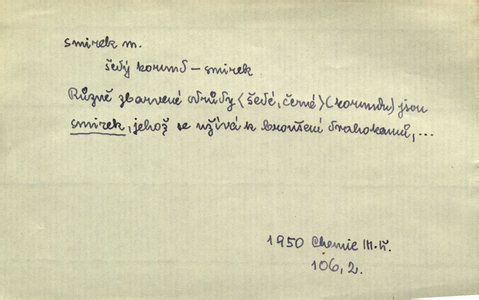 smirek m.
šedý korund – smirek
Různě zbarvené odrůdy (šedé, černé) (korundu) jsou
smirek, jehož se užívá k broušení drahokamů, ...
1950 Chemie III. tř.
106, 2.